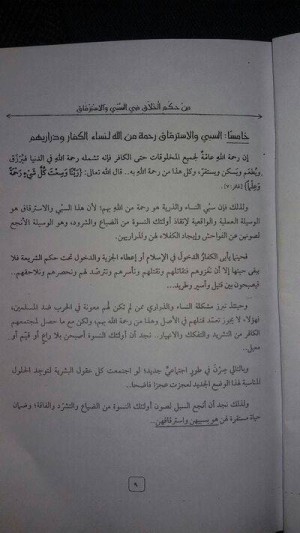 من حِكَم الخلّاق في السبي والاسترقاق
خامسًا: السبي والاسترقاق رحمة من الله لنساء الكفار وذراريهم
إن رحمة الله عامّةٌ لجميع المخلوقات حتى الكافر فإنه تشمله رحمة الله في الدنيا فيُرزَق
ويُطعَم ويسكن ويستقر، وكل هذا من رحمة الله به.. قال الله تعالى: {رَبَّنَا وَسِعْتَ كُلَّ شَيْءٍ رَحْمَةً
وَعِلْمًا} [غافر: ٧].
ولذلك فإن سبْي النساء والذرية هو رحمة من ربهم بهم؛ لأن هذا السبْي والاسترقاق هو
الوسيلة العملية والواقعية لإنقاذ أولئك النسوة من الضياع والشرود، وهو الوسيلة الأنجع
لصونهن عن الفواحش وإيجاد الكفلاء لهن ولذراريهن.
فحينما يأبى الكفارُ الدخولَ في الإسلام أو إعطاء الجزية والدخول تحت حكم الشريعة فلا
يبقى حينها إلا أن نغزوهم فنقاتلهم ونقتلهم ونأسرهم ونترصّد لهم ونحصرهم ونلاحقهم..
فيصبحون بين قتيل وأسير وطريد...
وحينئذ تبرز مشكلة النساء والذراري ممن لم تكن لهم معونة في الحرب ضد المسلمين،
فهؤلاء لا يجوز تعمّد قتلهم في الأصل وهذا من رحمة الله بهم، ولكن مع ما حصل لمجتمعهم
الكافر من التشريد والتفكك والانهيار.. نجد أن أولئك النسوة أصبحن بلا راعٍ أو قيّم أو
معيل..
وبالتالي صِرْنَ في طورٍ اجتماعيٍّ جديد؛ لو اجتمعت كل عقول البشرية لتوجد الحلول
المناسبة لهذا الوضع الجديد لعجزت عجزا فاضحا..
ولذلك نجد أن أنجع السبل لصون أولئك النسوة من الضياع والتشرّد والفاقة؛ وضمان
حياة مستقرة لهن هو بسبيهن واسترقاقهن..
٩